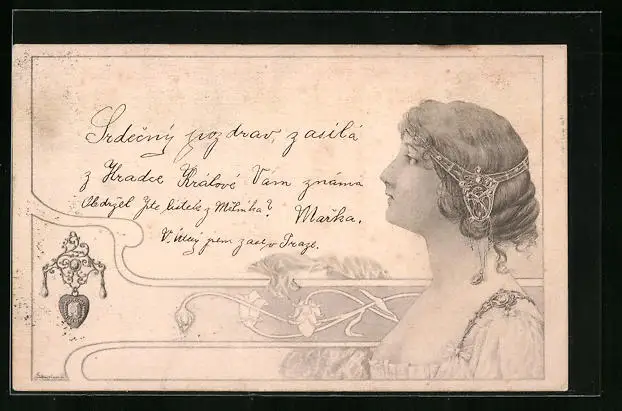 Srdečný pozdrav, zasílá
z Hradce Králové Vám známá
Obdržel jste lístek z Mělníka? Mařka.
V úterý jsem zase v Praze.